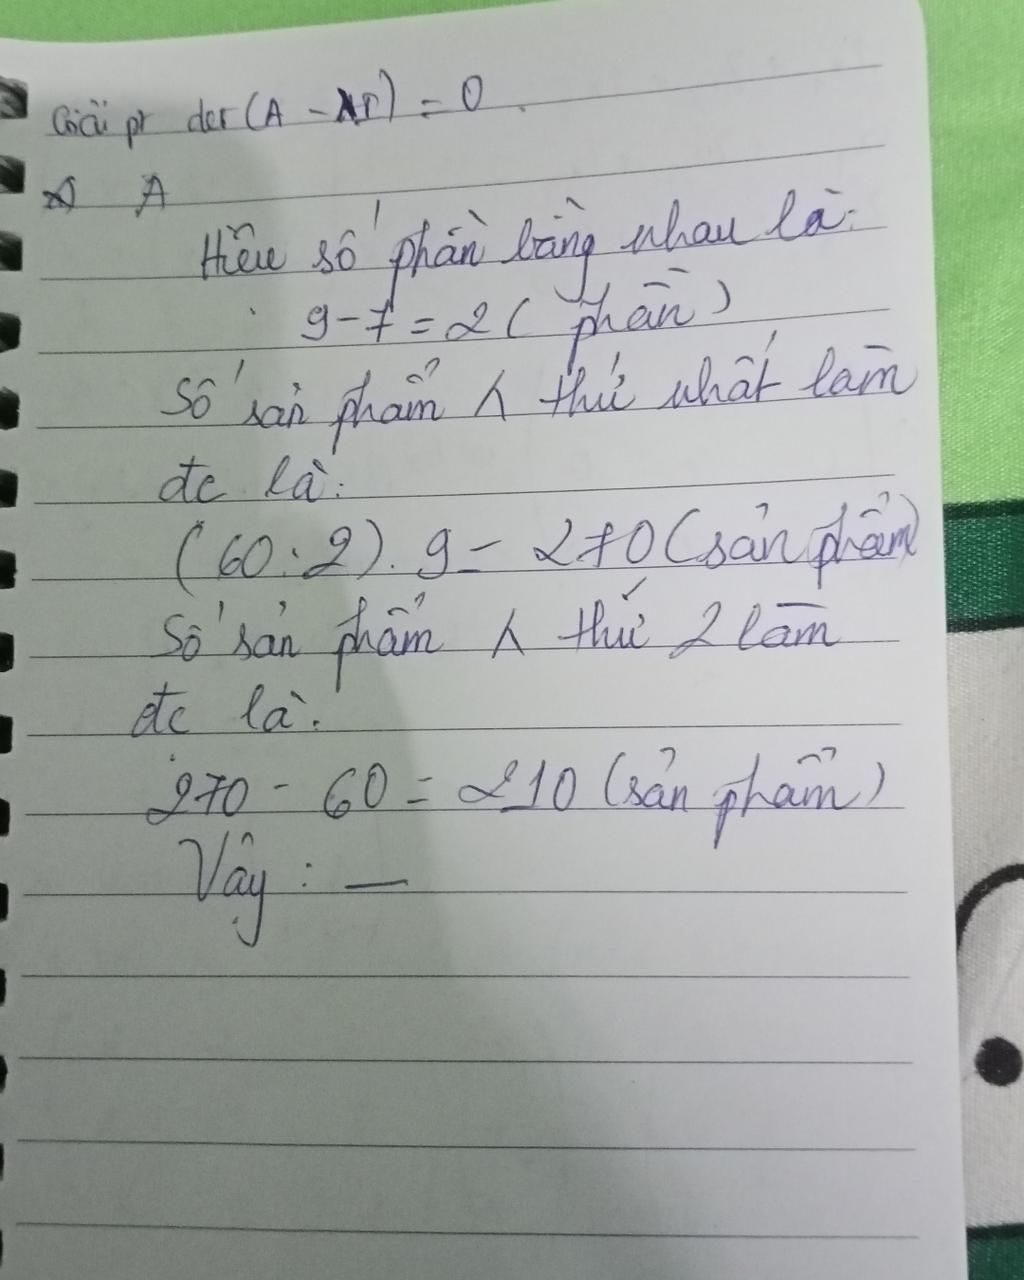 Giải pt det(A - λI) = 0.
A
Hiệu số phần bằng nhau là:
9-7=2( phần)
Số sản phẩm λ thứ nhất làm
đc là:
(60:2). 9= 270(sản phẩm)
Số sản phẩm λ thứ 2 làm
đc là:
270 - 60 = 210 (sản phẩm)
Vậy : —